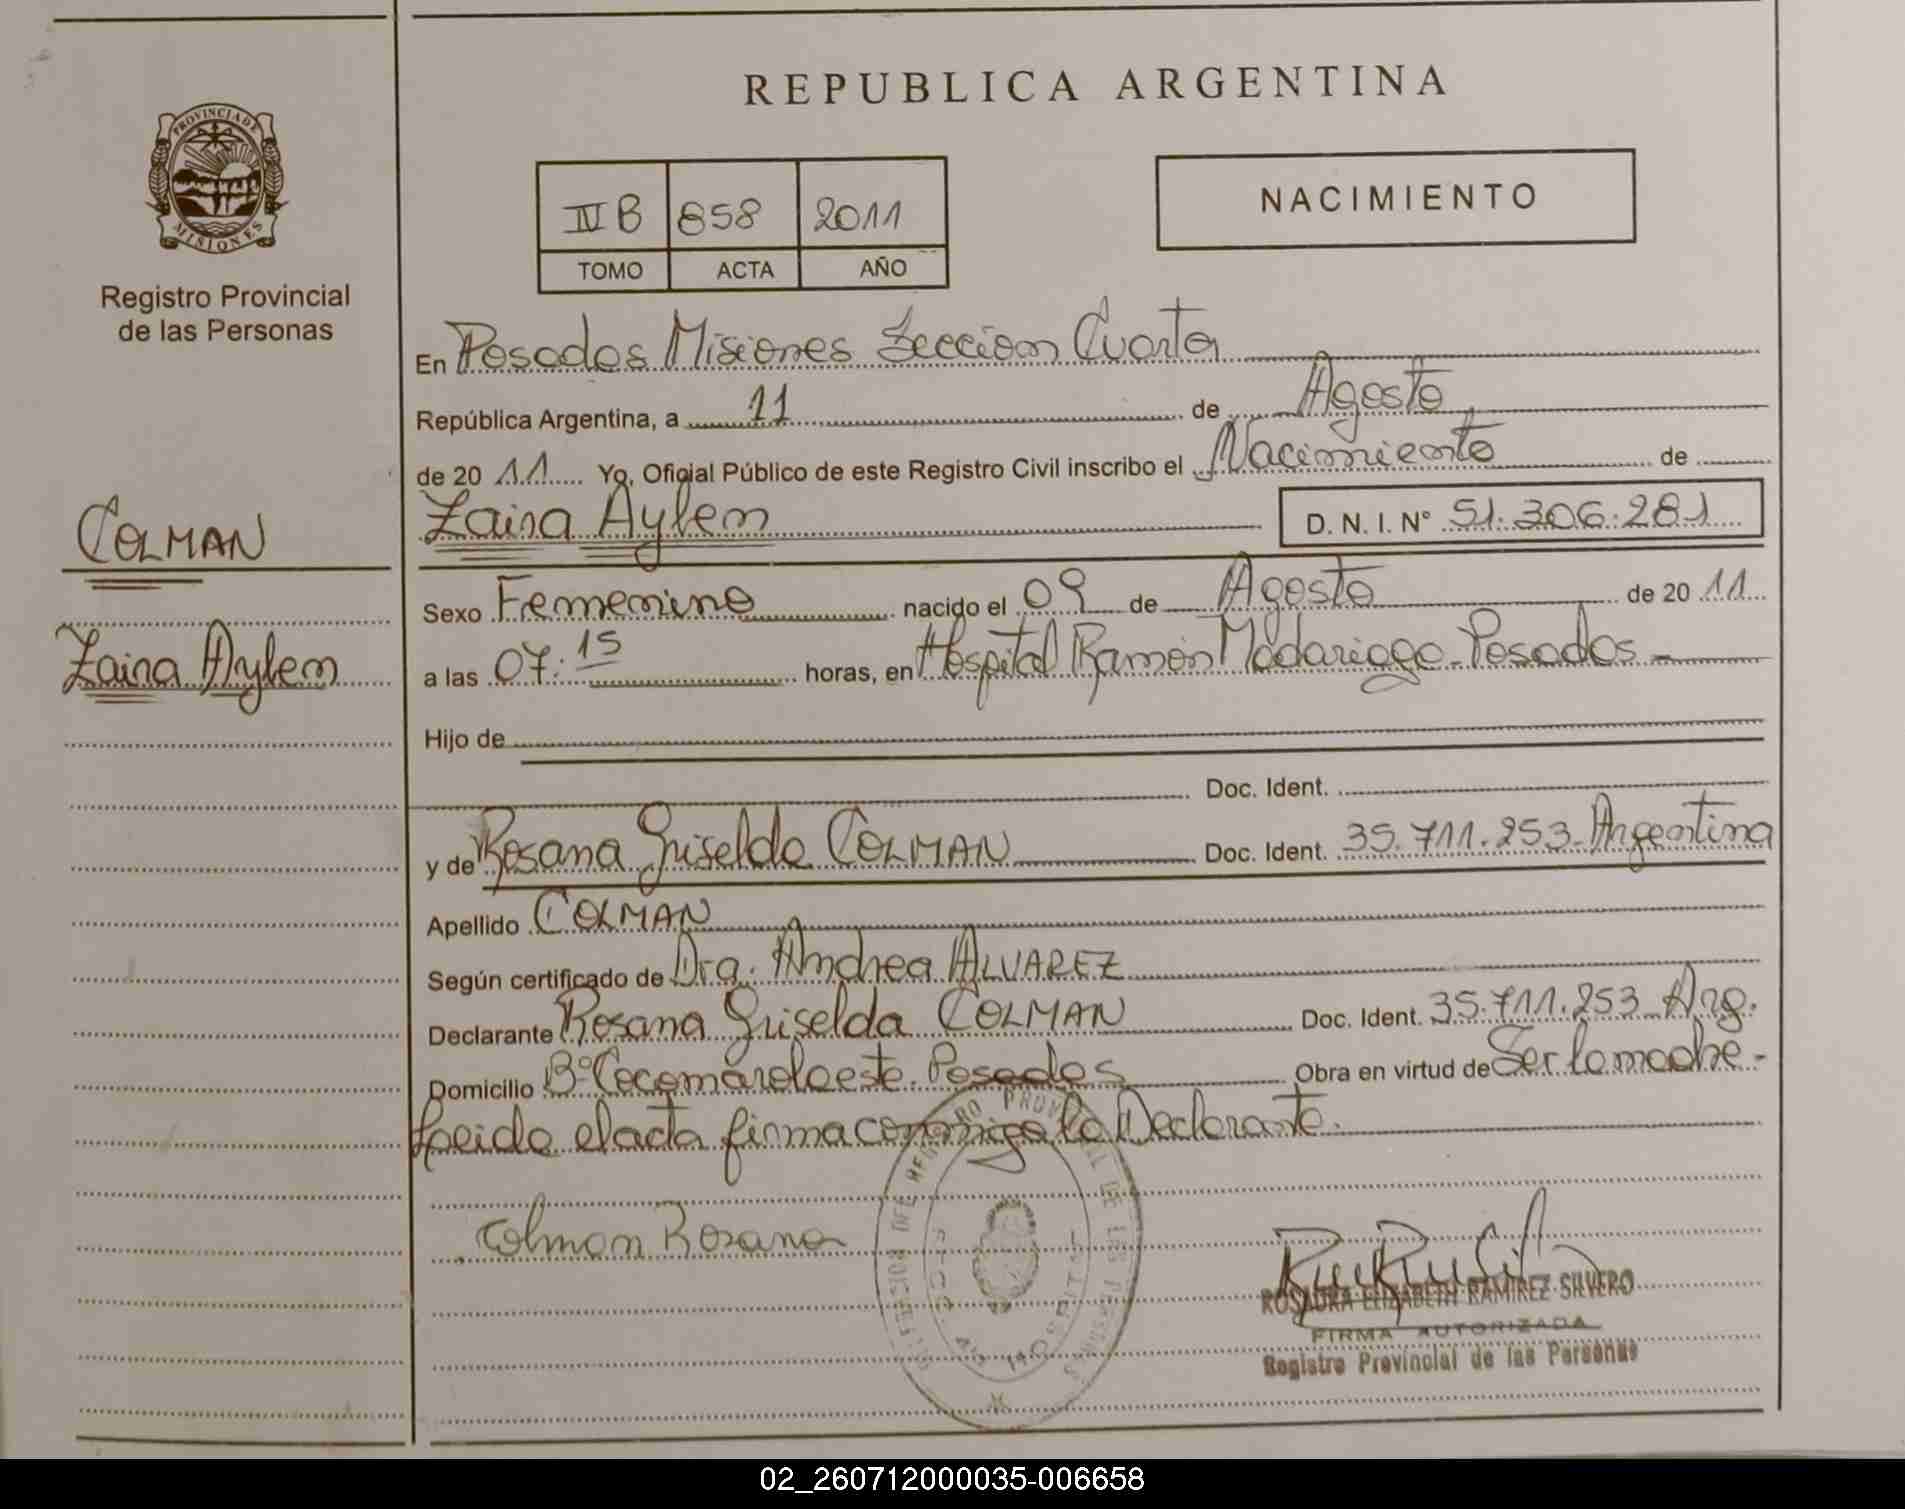 REPUBLICA ARGENTINA
PROVINCIA DE MISIONES
Registro Provincial
de las Personas
IV B 858 2011
TOMO ACTA AÑO
NACIMIENTO
En Posadas Misiones Seccion Cuarta
República Argentina, a 11 de Agosto
de 20 11 Yo, Oficial Público de este Registro Civil inscribo el Nacimiento de
Zaira Aylen D. N. I. Nº 51.306.281
COLMAN
Zaira Aylen
Sexo Femenino nacido el 09 de Agosto de 20 11
a las 07:15 horas, en Hospital Ramón Madariaga - Posadas -
Hijo de
Doc. Ident.
y de Rosana Griselda COLMAN Doc. Ident. 35.711.253 - Argentina
Apellido COLMAN
Según certificado de Dra. Andrea ALVAREZ
Declarante Rosana Griselda COLMAN Doc. Ident. 35.711.253 Arg.
Domicilio Bº Cocomarola oeste. Posadas Obra en virtud de Ser la madre -
Leida el acta firma conmigo la Declarante.
Colman Rosana
REGISTRO PROVINCIAL DE LAS PERSONAS
ROSAURA ELIZABETH RAMIREZ SILVERO
FIRMA AUTORIZADA
Registro Provincial de las Personas
02_260712000035-006658